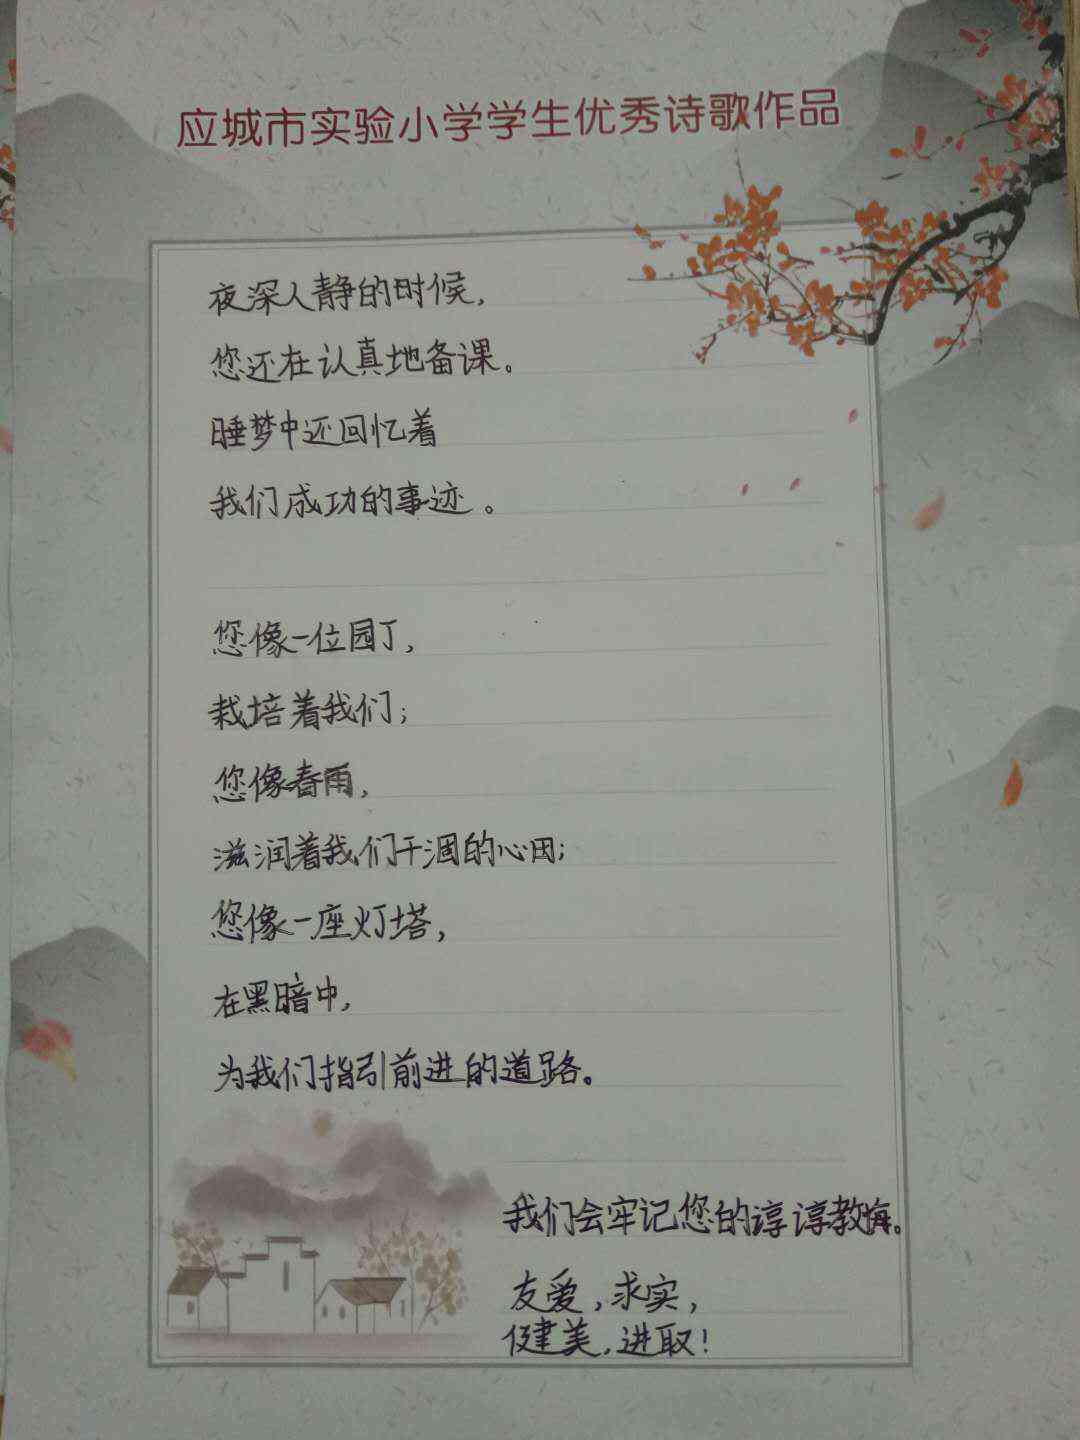 应城市实验小学学生优秀诗歌作品
夜深人静的时候,
您还在认真地备课。
睡梦中还回忆着
我们成功的事迹。
您像一位园丁,
栽培着我们;
您像春雨,
滋润着我们干涸的心田;
您像一座灯塔,
在黑暗中,
为我们指引前进的道路。
我们会牢记您的谆谆教诲。
友爱,求实,
健美,进取!